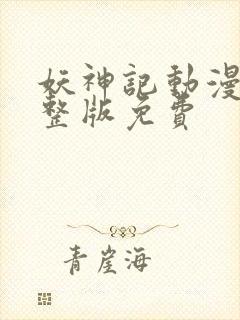 妖神記動漫
整版免費
青崖海